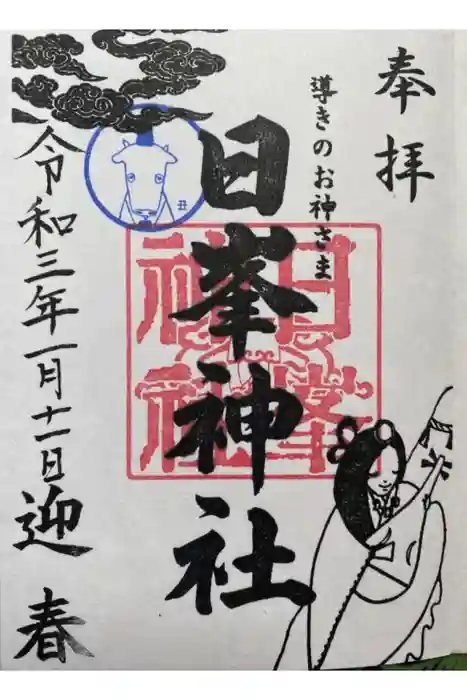 奉拝
導きのお神さま
日峯神社
日峯
神社
丑
令和三年一月十一日迎春